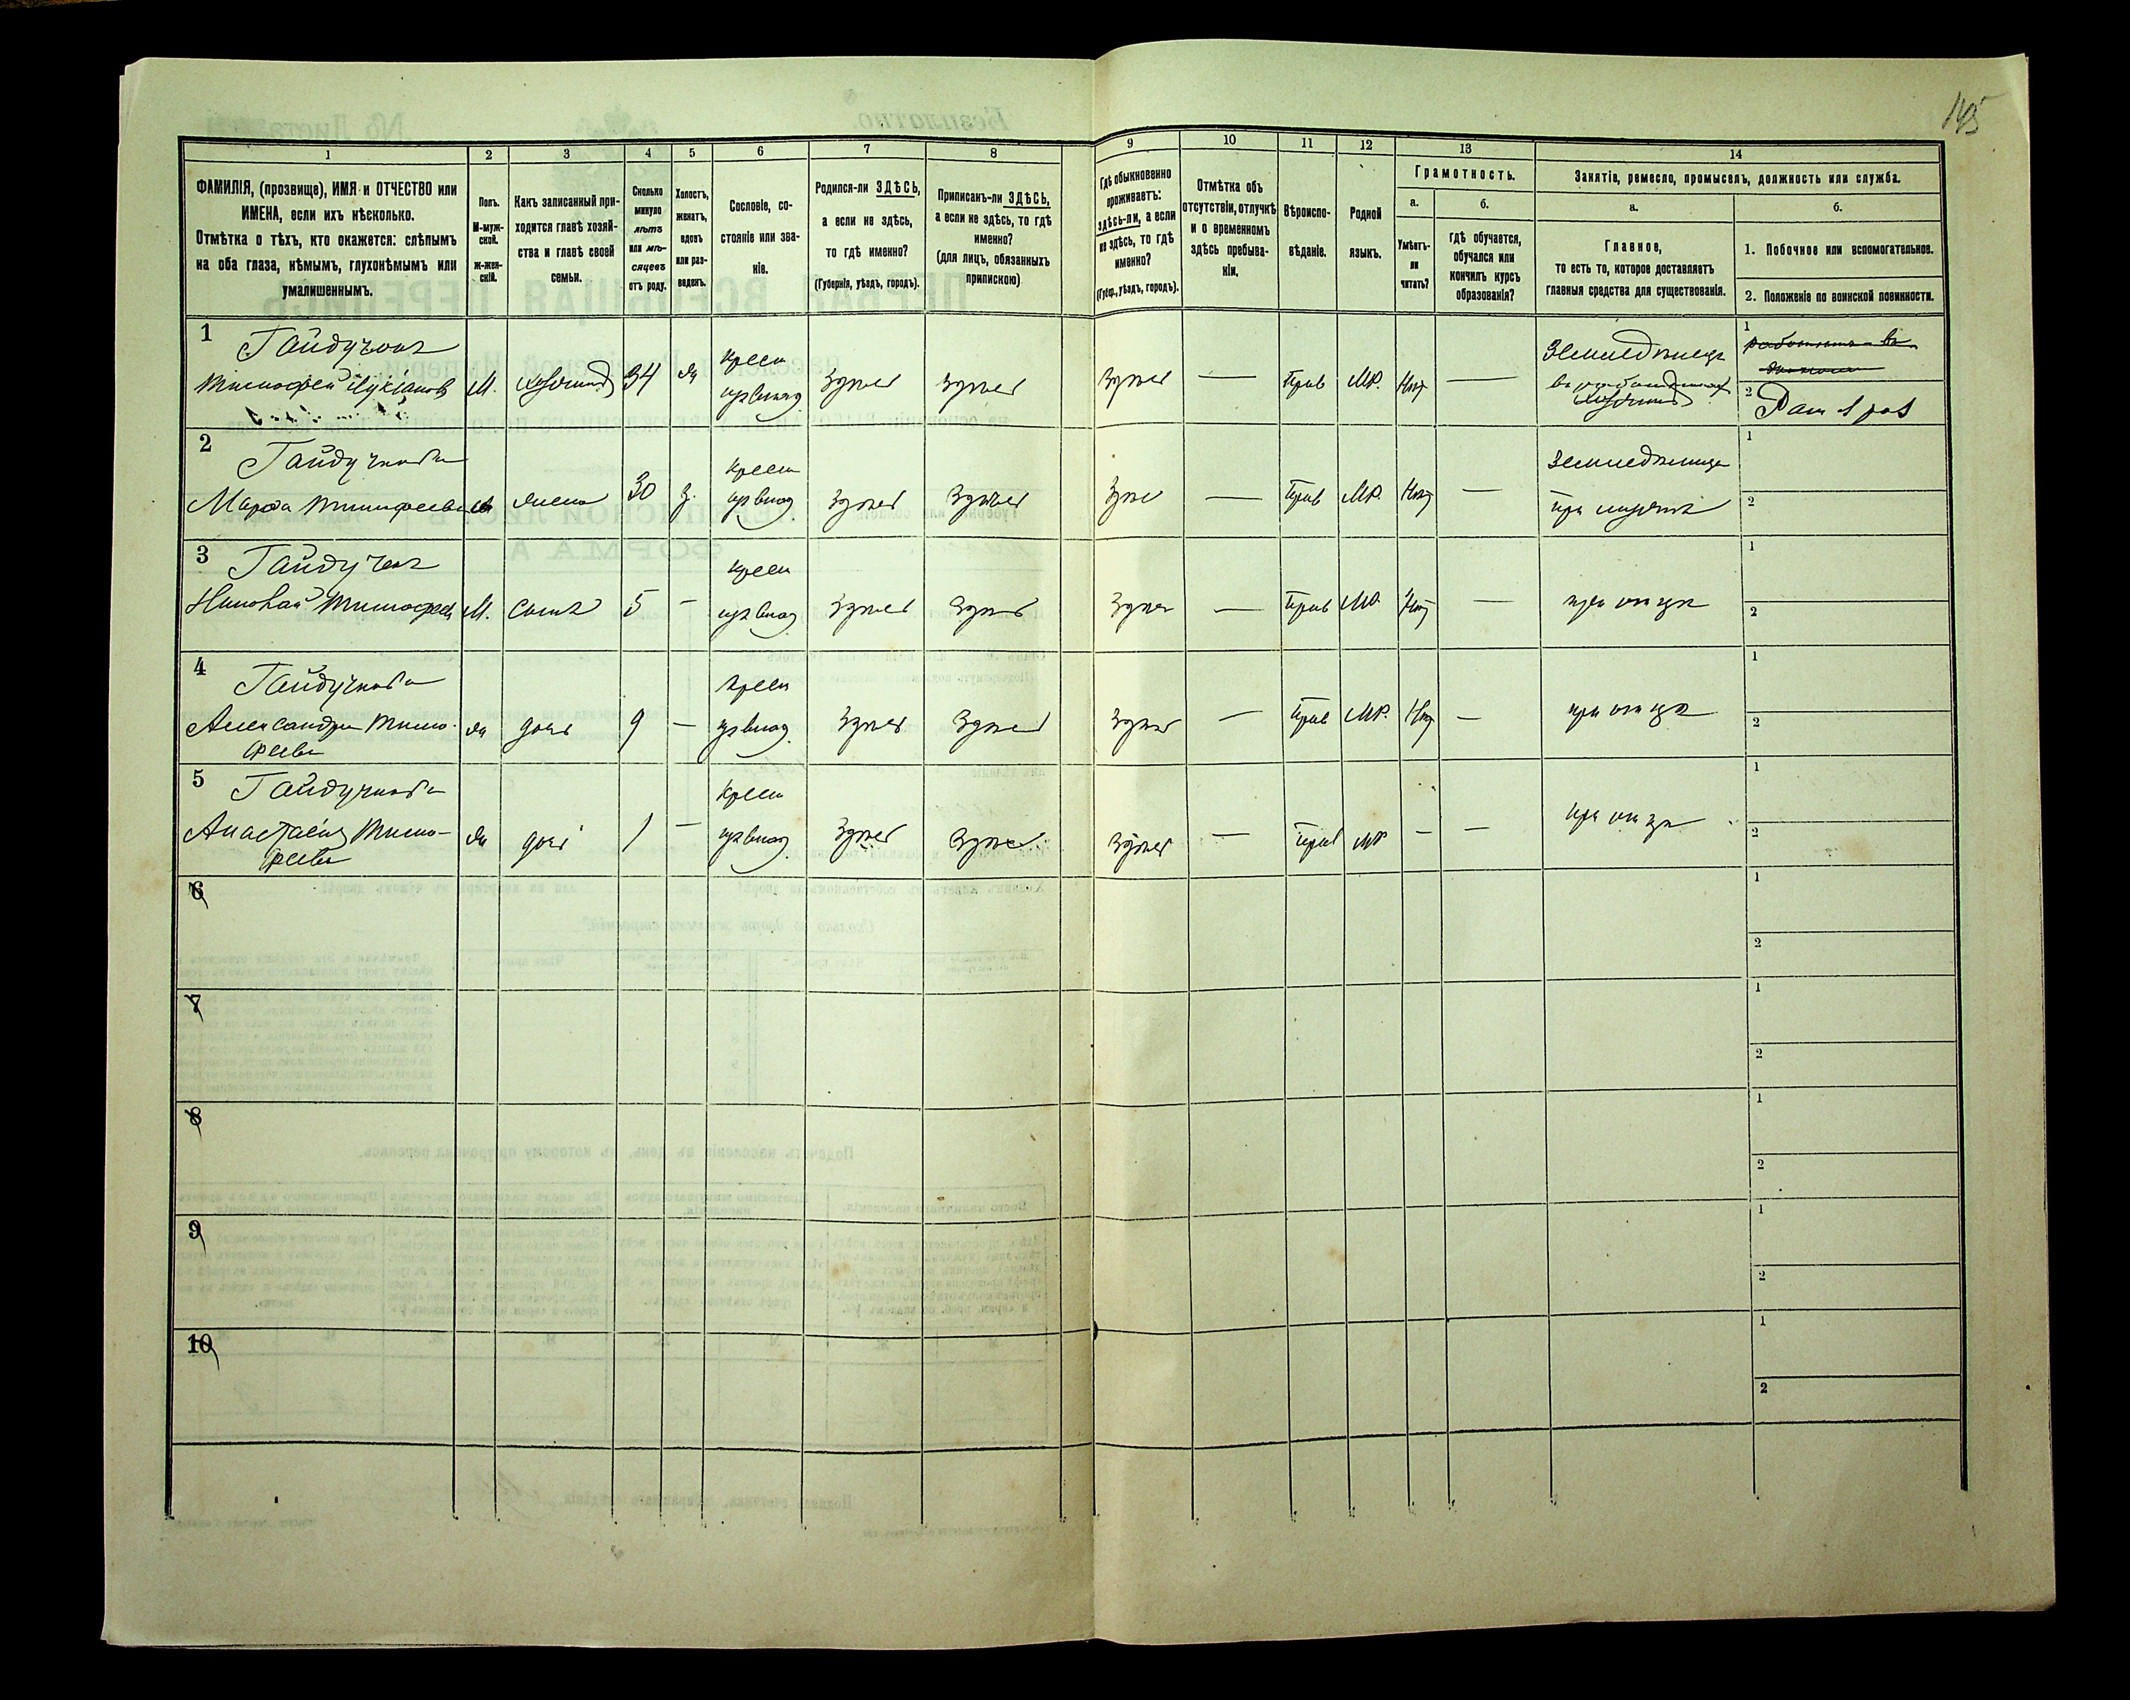 145
1
2
3
4
5
6
7
8
9
10
11
12
13
14
ФАМИЛІЯ, (прозвище), ИМЯ и ОТЧЕСТВО или
ИМЕНА, если ихъ нѣсколько.
Отмѣтка о тѣхъ, кто окажется: слѣпымъ
на оба глаза, нѣмымъ, глухонѣмымъ или
умалишеннымъ.
Полъ.
М-муж-
ской.
ж-жен-
скій.
Какъ записанный при-
ходится главѣ хозяй-
ства и главѣ своей
семьи.
Сколько
минуло
лѣтъ
или мѣ-
сяцевъ
отъ роду.
Холостъ,
женатъ,
вдовъ
или раз-
веденъ.
Сословіе, со-
стояніе или зва-
ніе.
Родился-ли ЗДѢСЬ,
а если не здѣсь,
то гдѣ именно?
(Губернія, уѣздъ, городъ).
Приписанъ-ли ЗДѢСЬ,
а если не здѣсь, то гдѣ
именно?
(для лицъ, обязанныхъ
припискою)
Гдѣ обыкновенно
проживаетъ:
здѣсь-ли, а если
не здѣсь, то гдѣ
именно?
(Губер., уѣздъ, городъ).
Отмѣтка объ
отсутствіи, отлучкѣ
и о временномъ
здѣсь пребыва-
ніи.
Вѣроиспо-
вѣданіе.
Родной
языкъ.
Грамотность.
а.
б.
Умѣетъ-
ли
читать?
гдѣ обучается,
обучался или
кончилъ курсъ
образованія?
Занятіе, ремесло, промыселъ, должность или служба.
а.
б.
Главное,
то есть то, которое доставляетъ
главныя средства для существованія.
1. Побочное или вспомогательное.
2. Положеніе по воинской повинности.
1
Гайдученъ
Тимофей Лукіановъ
М. хозяинъ 34 ж
крест
изъ влад
здѣсь здѣсь здѣсь — Прав МР. Нѣт —
Земледѣлецъ
хозяинъ
1
2 Рат 1 раз
2
Гайдучкова
Марфа Тимофеева ж жена 30 з.
крест
изъ влад
здѣсь здѣсь здѣсь — Прав МР. Нѣт —
Земледѣлица
при мужѣ
1
2
3
Гайдученъ
Николай Тимофеев М. сынъ 5 —
крест
изъ влад
здѣсь здѣсь здѣсь — Прав МР Нѣт —
при отцѣ
1
2
4
Гайдучкова
Александра Тимо-
феева
ж дочь 9 —
крест
изъ влад
здѣсь здѣсь здѣсь — Прав МР. Нѣт —
при отцѣ
1
2
5
Гайдучкова
Анастасія Тимо-
феева
ж дочь 1 —
крест
изъ влад
здѣсь здѣсь здѣсь — Прав МР — —
при отцѣ
1
2
6
1
2
7
1
2
8
1
2
9
1
2
10
1
2